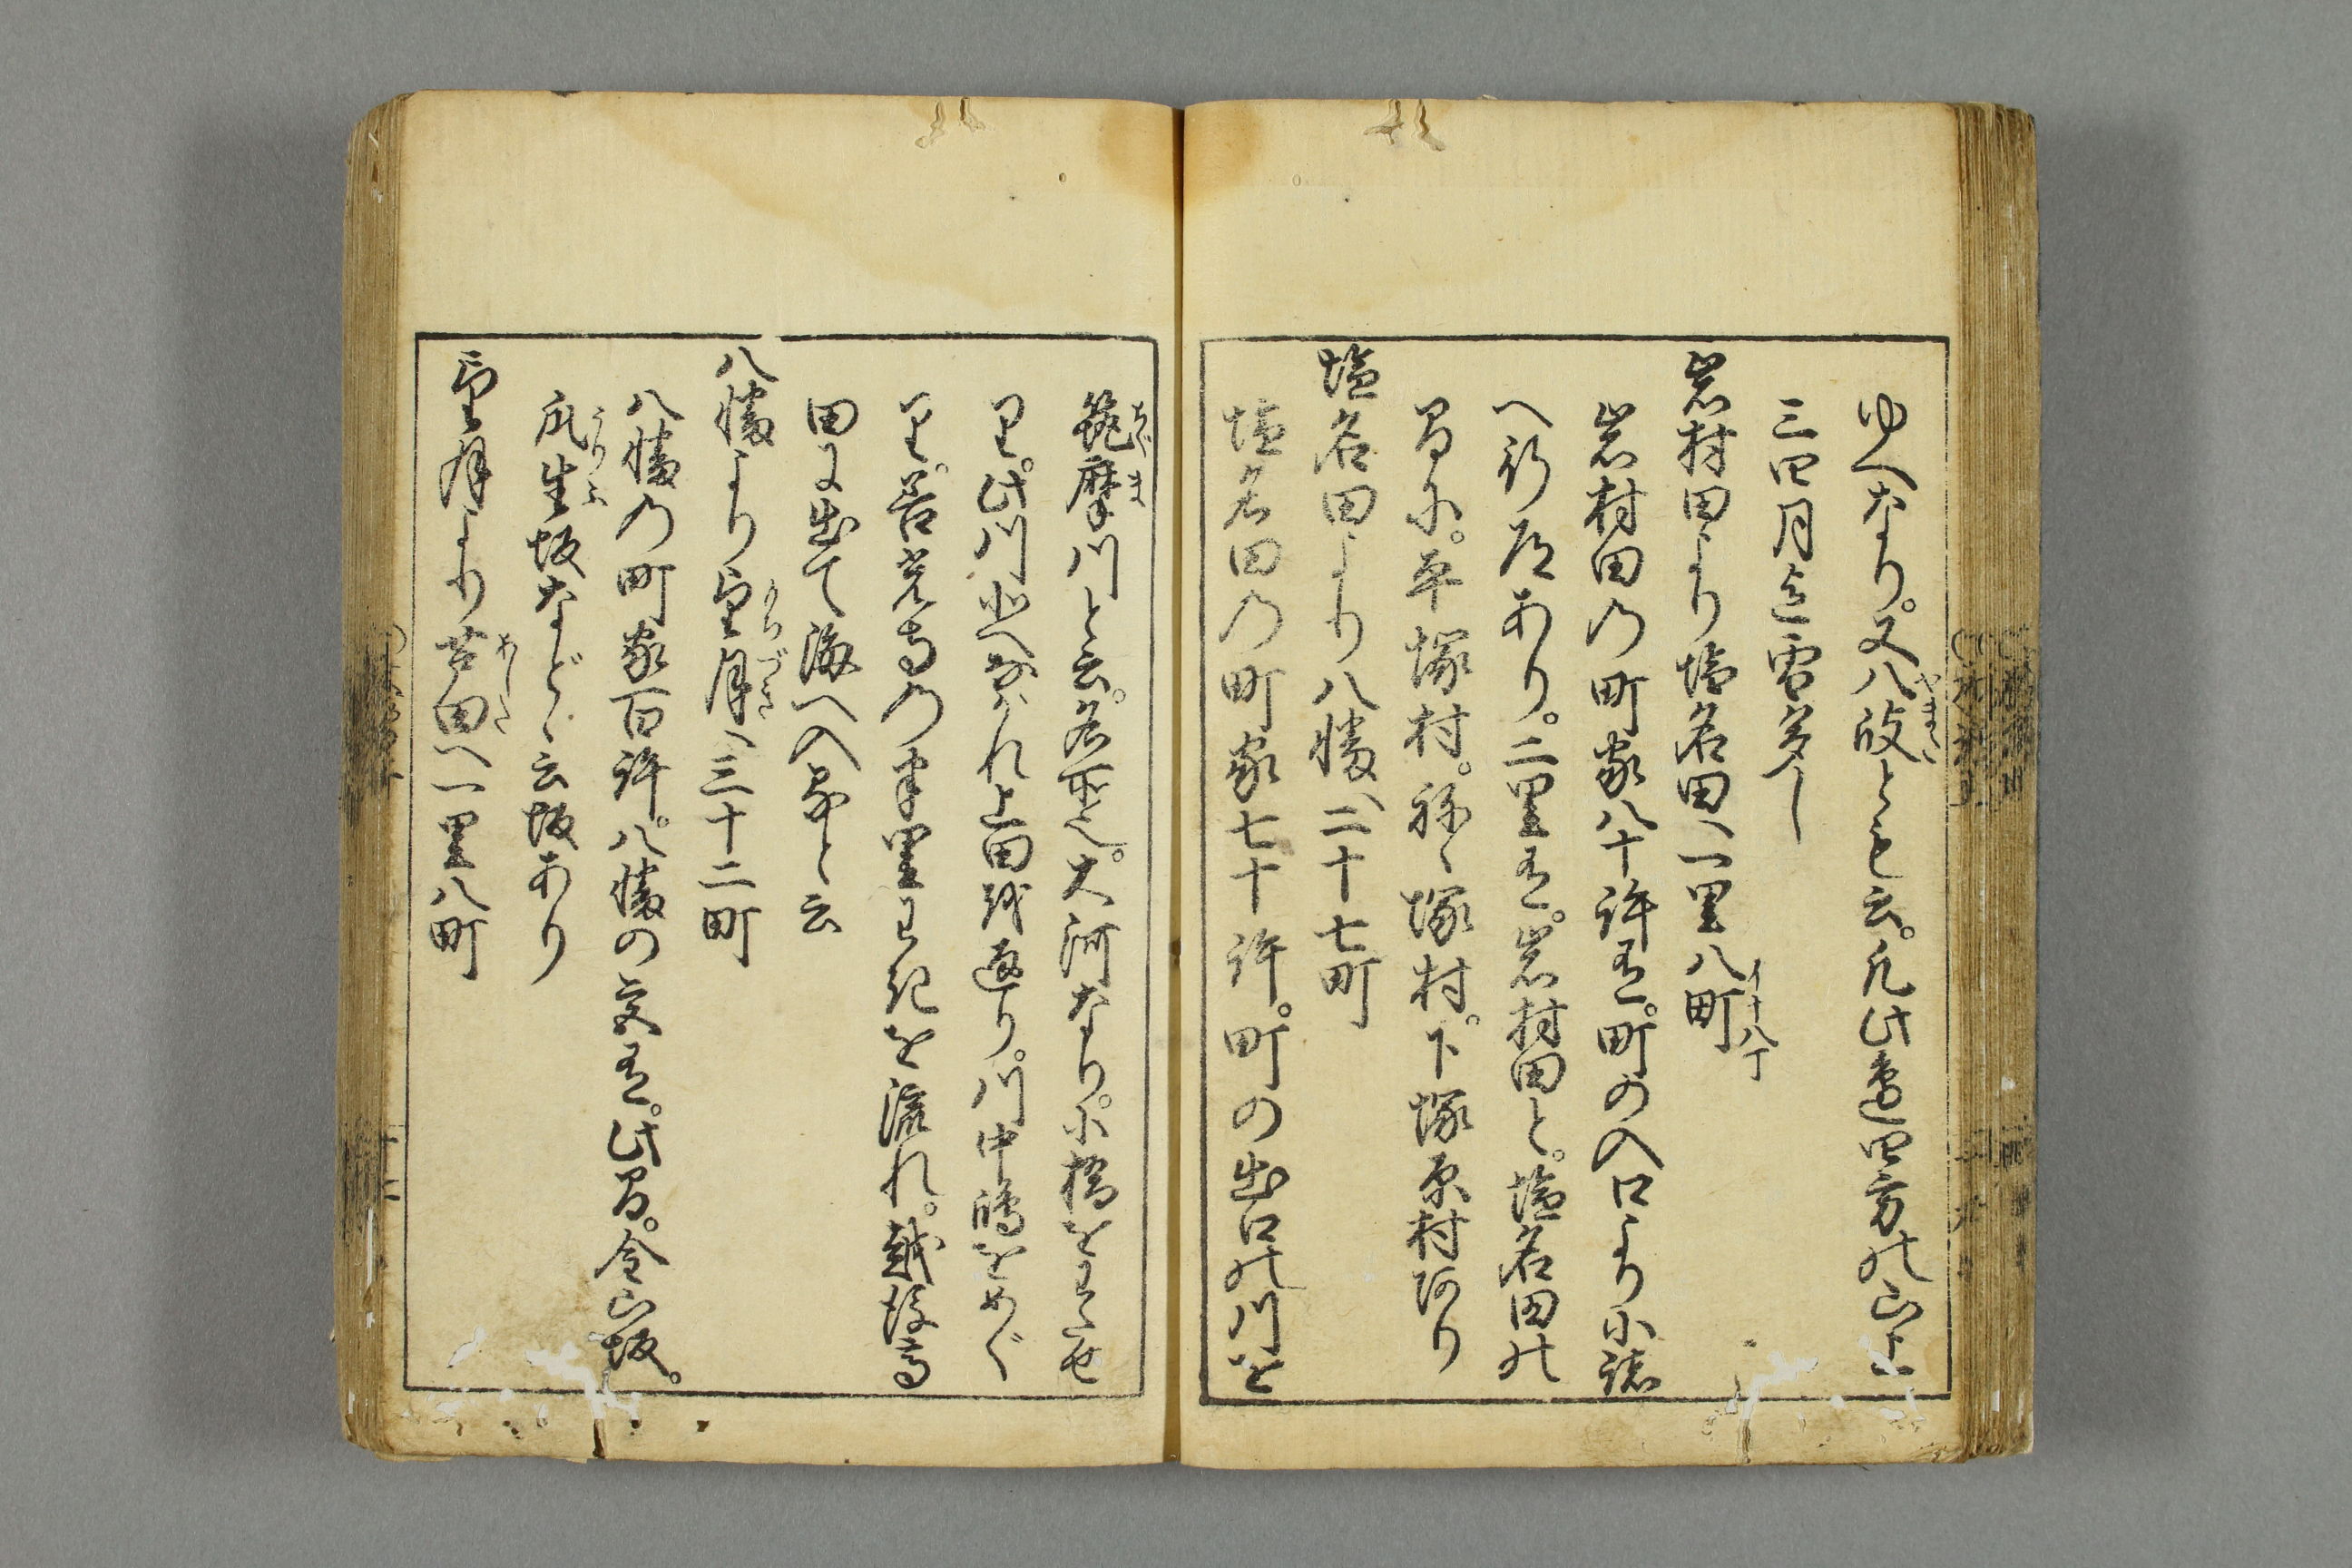 ゆへなり。又八岐とも云。凡此邊四方の山に
三四月迄雪多し
岩村田より塩名田へ一里八町
岩村田の町家八十許有。町の入口より小諸
へ行道あり。二里有。岩村田と。塩名田の
間に。平塚村。祢々塚村。下塚原村阿り
塩名田より八幡へ二十七町
塩名田の町家七十許。町の出口の川を
筑摩川と云。名所也。大河なり。小橋をわたせ
り。此川水上田
り。善光寺の半里わきを流れ。越後高
田に出て海へ入ると云
八幡より望月へ三十二町
八幡の町家百許。八幡の宮有。此間。金山坂。
瓜生坂などゝ云坂あり
望月より芦田へ一里八町